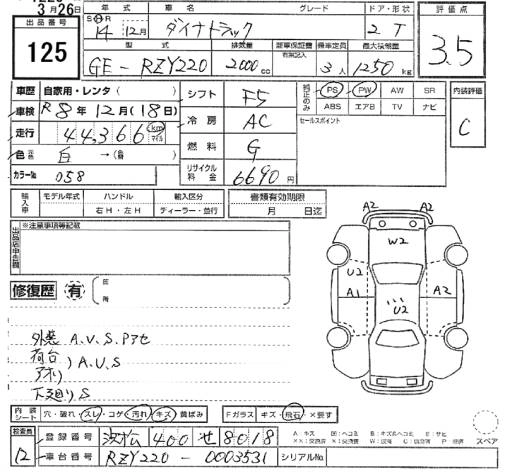 3月26日
出品番号
125
年式 車名 グレード ドア・形状
S H R 14 12月 ダイナトラック 2 T
型式 排気量 新車保証書 乗車定員 最大積載量
有無記入
GE-RZY220 2000cc 3人 1250kg
評価点
3.5
車歴 自家用・レンタ( )
車検 R8年12月(18日)
走行 44,366 km マイル
色 元色 白 →(替 )
カラーNo 058
シフト F5
冷房 AC
燃料 G
リサイクル料金 6690円
純正のみ PS PW AW SR
ABS エアB TV ナビ
セールスポイント
内装評価
C
輸入車 モデル年式 ハンドル 輸入区分
年 右H・左H ディーラー・並行
書類有効期限
月 日迄
出品店申告欄
※注意事項等記載
修復歴 有 箇所
外装 A.U.S.Pアセ
荷台
アオリ ) A.U.S
下廻り S
A2 A2
W2
U2
A1 A2
U2
内装シート 穴・破れ・スレ・コゲ・汚れ・キズ・黄ばみ
Fガラス キズ・飛石・X要す
検査員 12
登録番号 浜松 400 せ 8018
車台番号 RZY220-0003531 シリアルNo
スペア